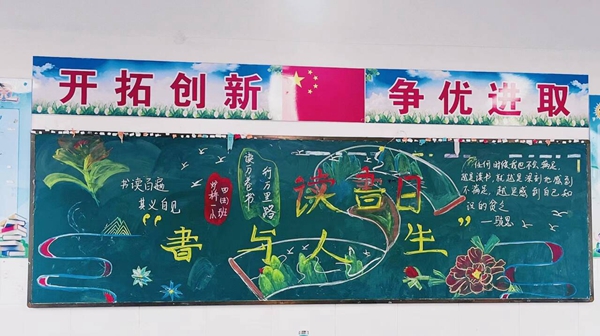 开拓创新 争优进取
书读百遍
其义自见
四四班
妙桥一小
读万卷书
行万里路
读書日
“書与人生”
任何时候我也不会满足
越是读书，就越是深刻地感到
不满足，越是感到自己知
识的贫乏
—马克思